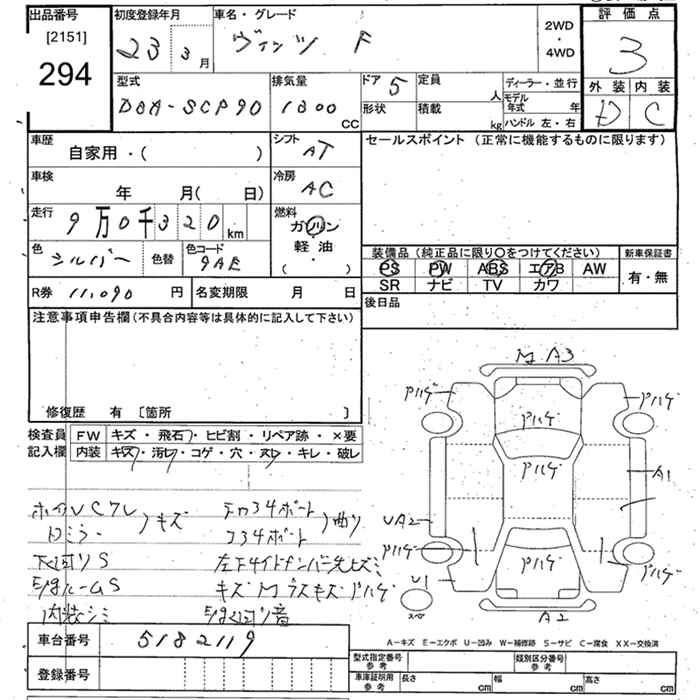 出品番号
[2151]
294
初度登録年月
23 3月
車名・グレード
ヴィッツ F
2WD
・
4WD
評価点
3
外装 内装
D C
型式
DBA-SCP90
排気量
1300 CC
ドア 5
形状
定員 人
積載 kg
ディーラー・並行
モデル年式 年
ハンドル 左・右
車歴
自家用・( )
シフト
AT
セールスポイント (正常に機能するものに限ります)
車検
年 月( 日)
冷房
AC
走行
9万0千320km
燃料
ガソリン
軽油・
( )
色
シルバー
色替
色コード
9AE
装備品 (純正品に限り〇をつけてください)
新車保証書
PS PW ABS エアB AW
SR ナビ TV カワ
有・無
R券 11,090 円
名変期限 月 日
後日品
注意事項申告欄 (不具合内容等は具体的に記入して下さい)
修復歴 有 [箇所 ]
検査員
記入欄
FW キズ・飛石・ヒビ割・リペア跡・×要
内装 キズ・汚れ・コゲ・穴・スレ・キレ・破レ
M A3
Pハゲ
Pハゲ
Pハゲ
Pハゲ
A1
UA2
Pハゲ
Pハゲ
Pハゲ
U1
スペア
A2
キズ
34ボート
Dミラー
34ボート
曲り
下回りS
左F4イドナンバー先ヒズミ
ルームS
キズM ラスキズPハゲ
内装シミ
回り音
車台番号 5182119
登録番号
A-キズ E-エクボ U-凹み W-補修跡 S-サビ C-腐食 XX-交換済
型式指定番号
参考
類別区分番号
参考
車庫証明用
参考
長さ cm
幅 cm
高さ cm